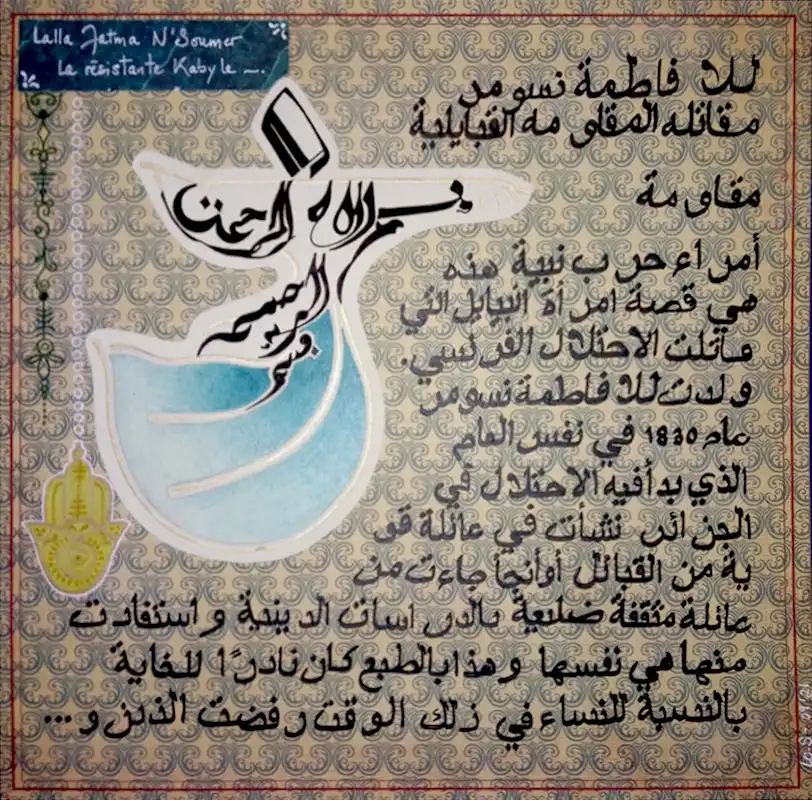 Lalla Fatma N'Soumer
La résistante Kabyle ـــ.
للا فاطمة نسو مر
مقاتله المقاو مه القبايلية
مقاو مة
أمر اء حر ب نبية هذه
هي قصة امر أة البيايل التي
قاتلت الاحتلال الفر نسي.
و لدت للا فاطمة نسو مر
عام 1830 في نفس العام
الذي بدأ فيه الاحتلال في
الجز ائر نشأت في عائلة قو
ية من القبائل أو أنها جاءت من
عائلة مثقفة ضليعة بالدر اسات الدينية و استفادت
منها هي نفسها و هذا بالطبع كان نادرًا للغاية
بالنسبة للنساء في ذلك الوقت ر فضت الذين و...
بسم الله الرحمن